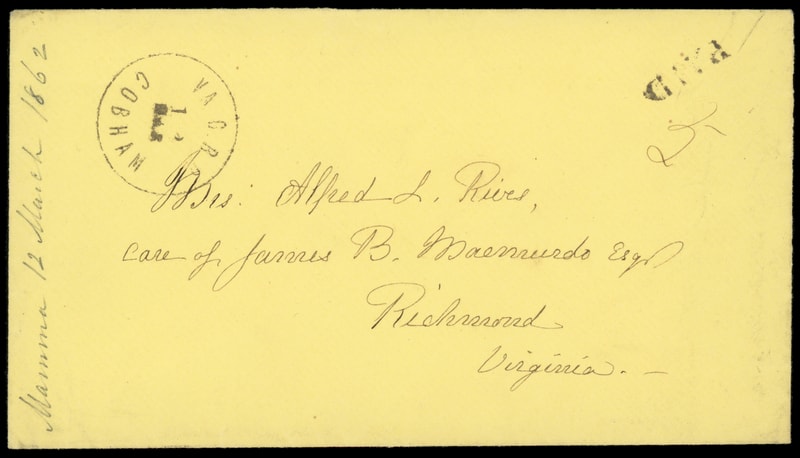 Mamma 12 March 1862
COBHAM
VA C R R
PAID
5
Mrs. Alfred L. Rives,
care of James B. Macmurdo Esqr
Richmond
Virginia. -